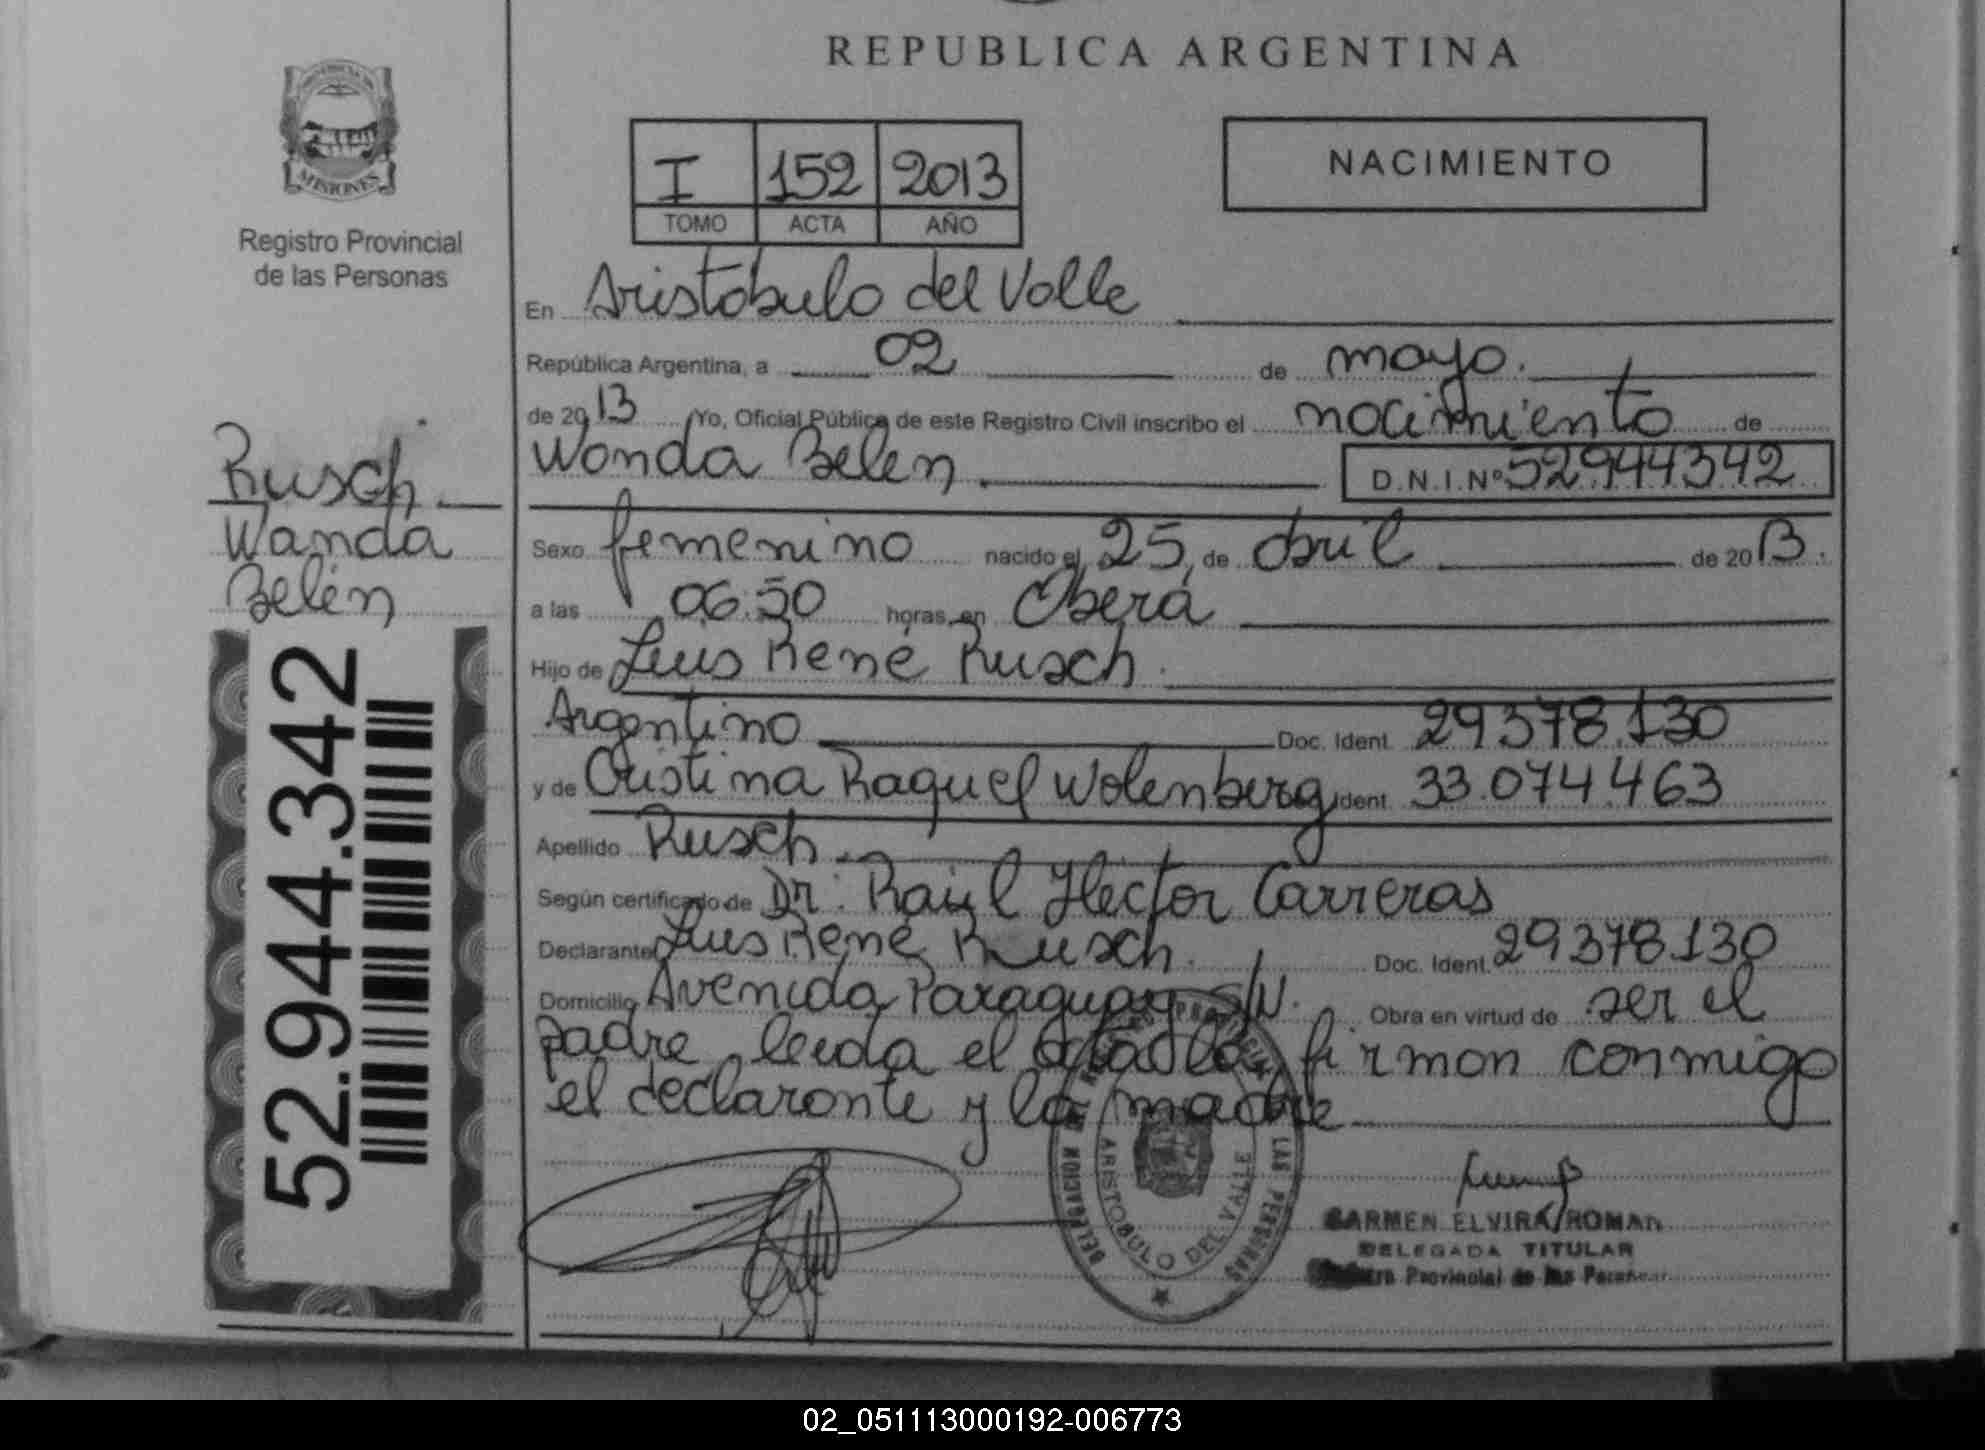 REPUBLICA ARGENTINA
MISIONES
Registro Provincial
de las Personas
I 152 2013
TOMO ACTA AÑO
NACIMIENTO
En Aristóbulo del Valle
República Argentina, a 02 de mayo.
de 2013 Yo, Oficial Público de este Registro Civil inscribo el nacimiento de
Wanda Belén D.N.I.Nº 52944342
Rusch
Wanda
Belén
52.944.342
Sexo femenino nacido el 25 de abril de 2013.
a las 06:50 horas, en Oberá
Hijo de Luis René Rusch.
Argentino Doc. Ident. 29378.130
y de Cristina Raquel Wolenberg Ident. 33.074.463
Apellido Rusch.
Según certificado de Dr. Raúl Hector Carreras
Declarante Luis René Rusch. Doc. Ident. 29378.130
Domicilio Avenida Paraguay S/N. Obra en virtud de ser el
padre, leida el acta la firman conmigo
el declarante y la madre
DELEGACION DEL REGISTRO PROVINCIAL DE LAS PERSONAS
ARISTOBULO DEL VALLE
CARMEN ELVIRA ROMAN
DELEGADA TITULAR
Registro Provincial de las Personas
02_051113000192-006773